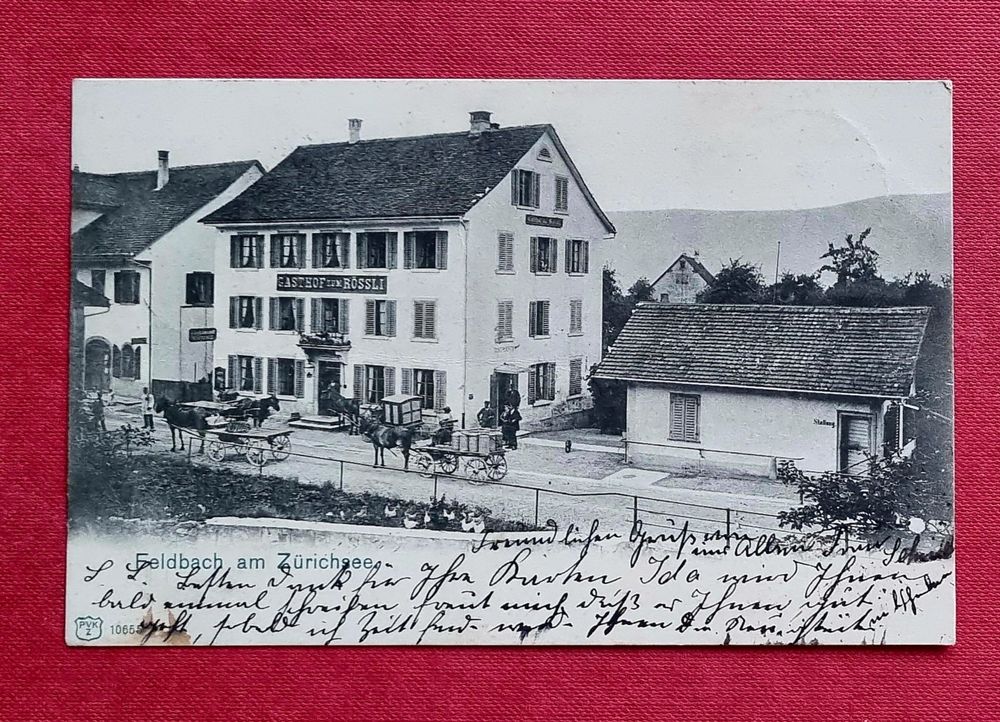 GASTHOF ZUM RÖSSLI
Stallung
Freundlichen Gruß von
uns Allen Frau
Feldbach am Zürichsee.
L. E. Besten Dank für Ihre Karten Ida wird Ihnen
bald einmal schreiben freut mich daß es Ihnen gut
geht, sobald ich Zeit finde werde Ihnen die
PVK
Z
1065